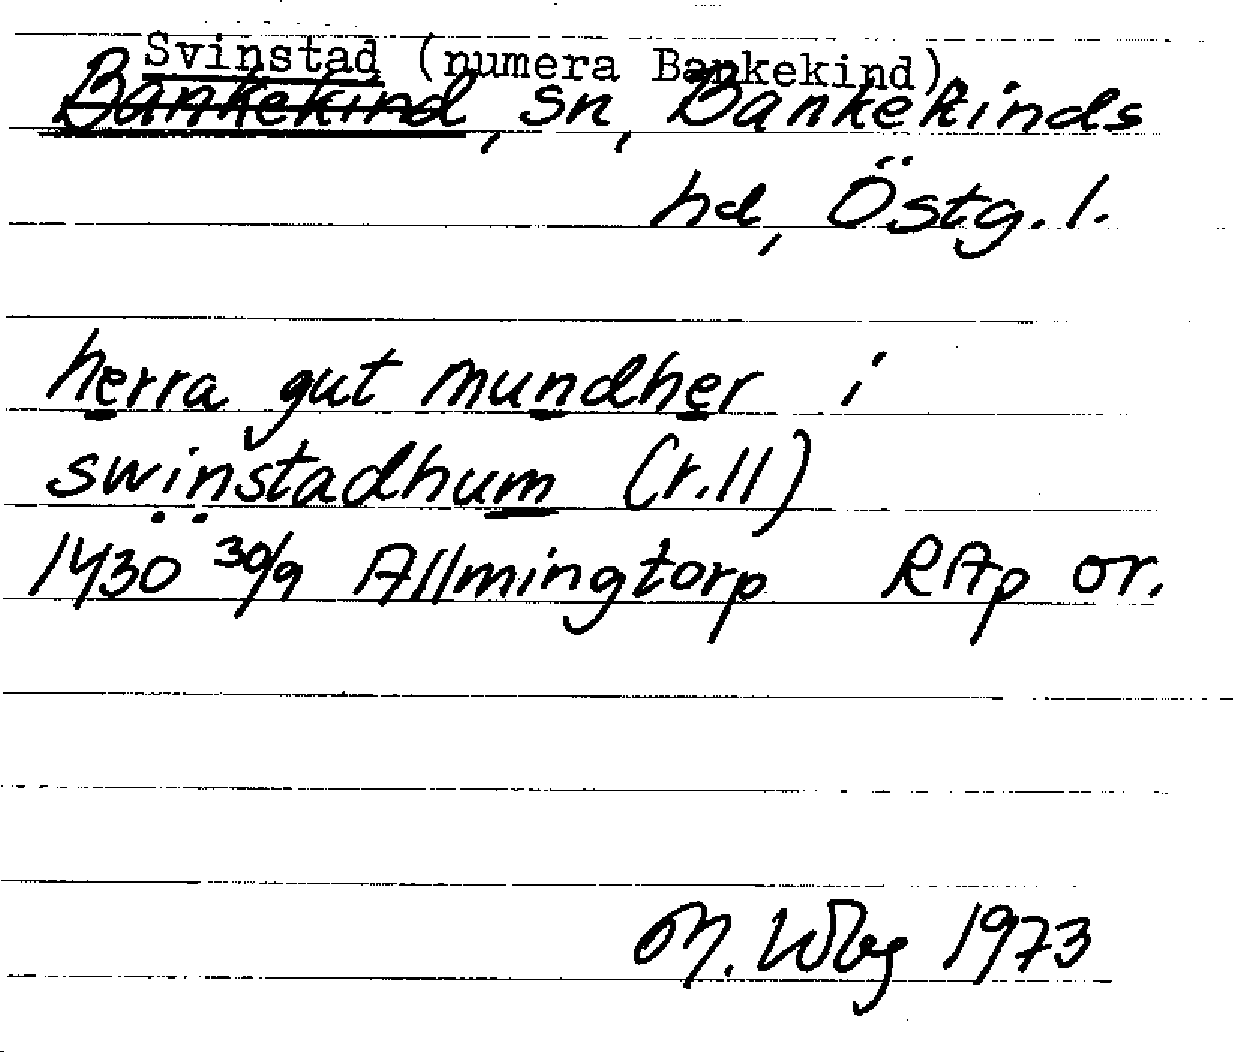 Svinstad (numera Bankekind)
Bankekind, sn, Bankekinds
hd, Östg. l.
herra gut mundher i
swinstadhum (r. 11)
1430 30/9 Allmingtorp RAp or.
M. Wbg 1973